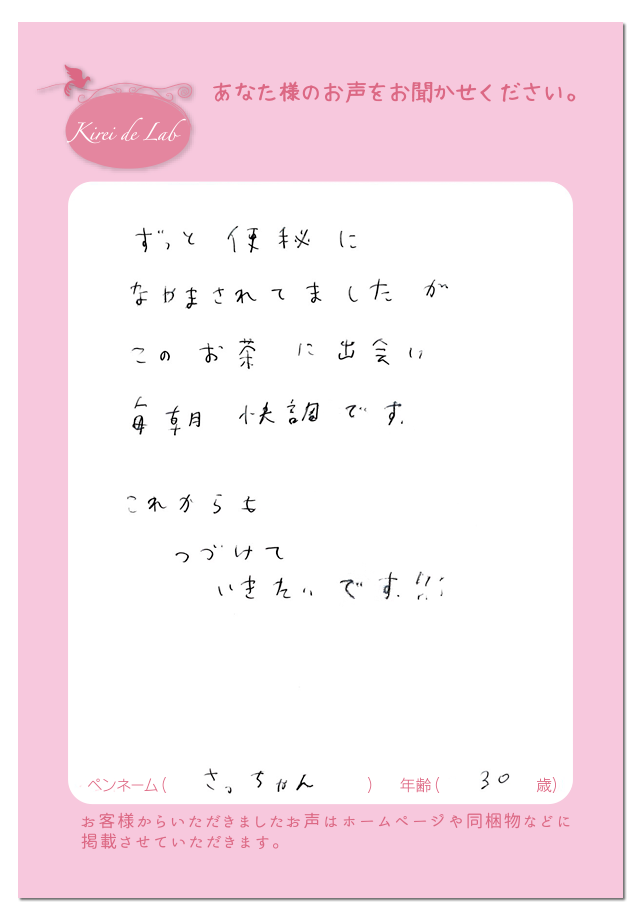 あなた様のお声をお聞かせください。
Kirei de Lab
ずっと便秘に
なやまされてましたが
このお茶に出会い
毎朝快調です.
これからも
つづけて
いきたいです.!!!
ペンネーム( さっちゃん ) 年齢( 30 歳)
お客様からいただきましたお声はホームページや同梱物などに
掲載させていただきます。